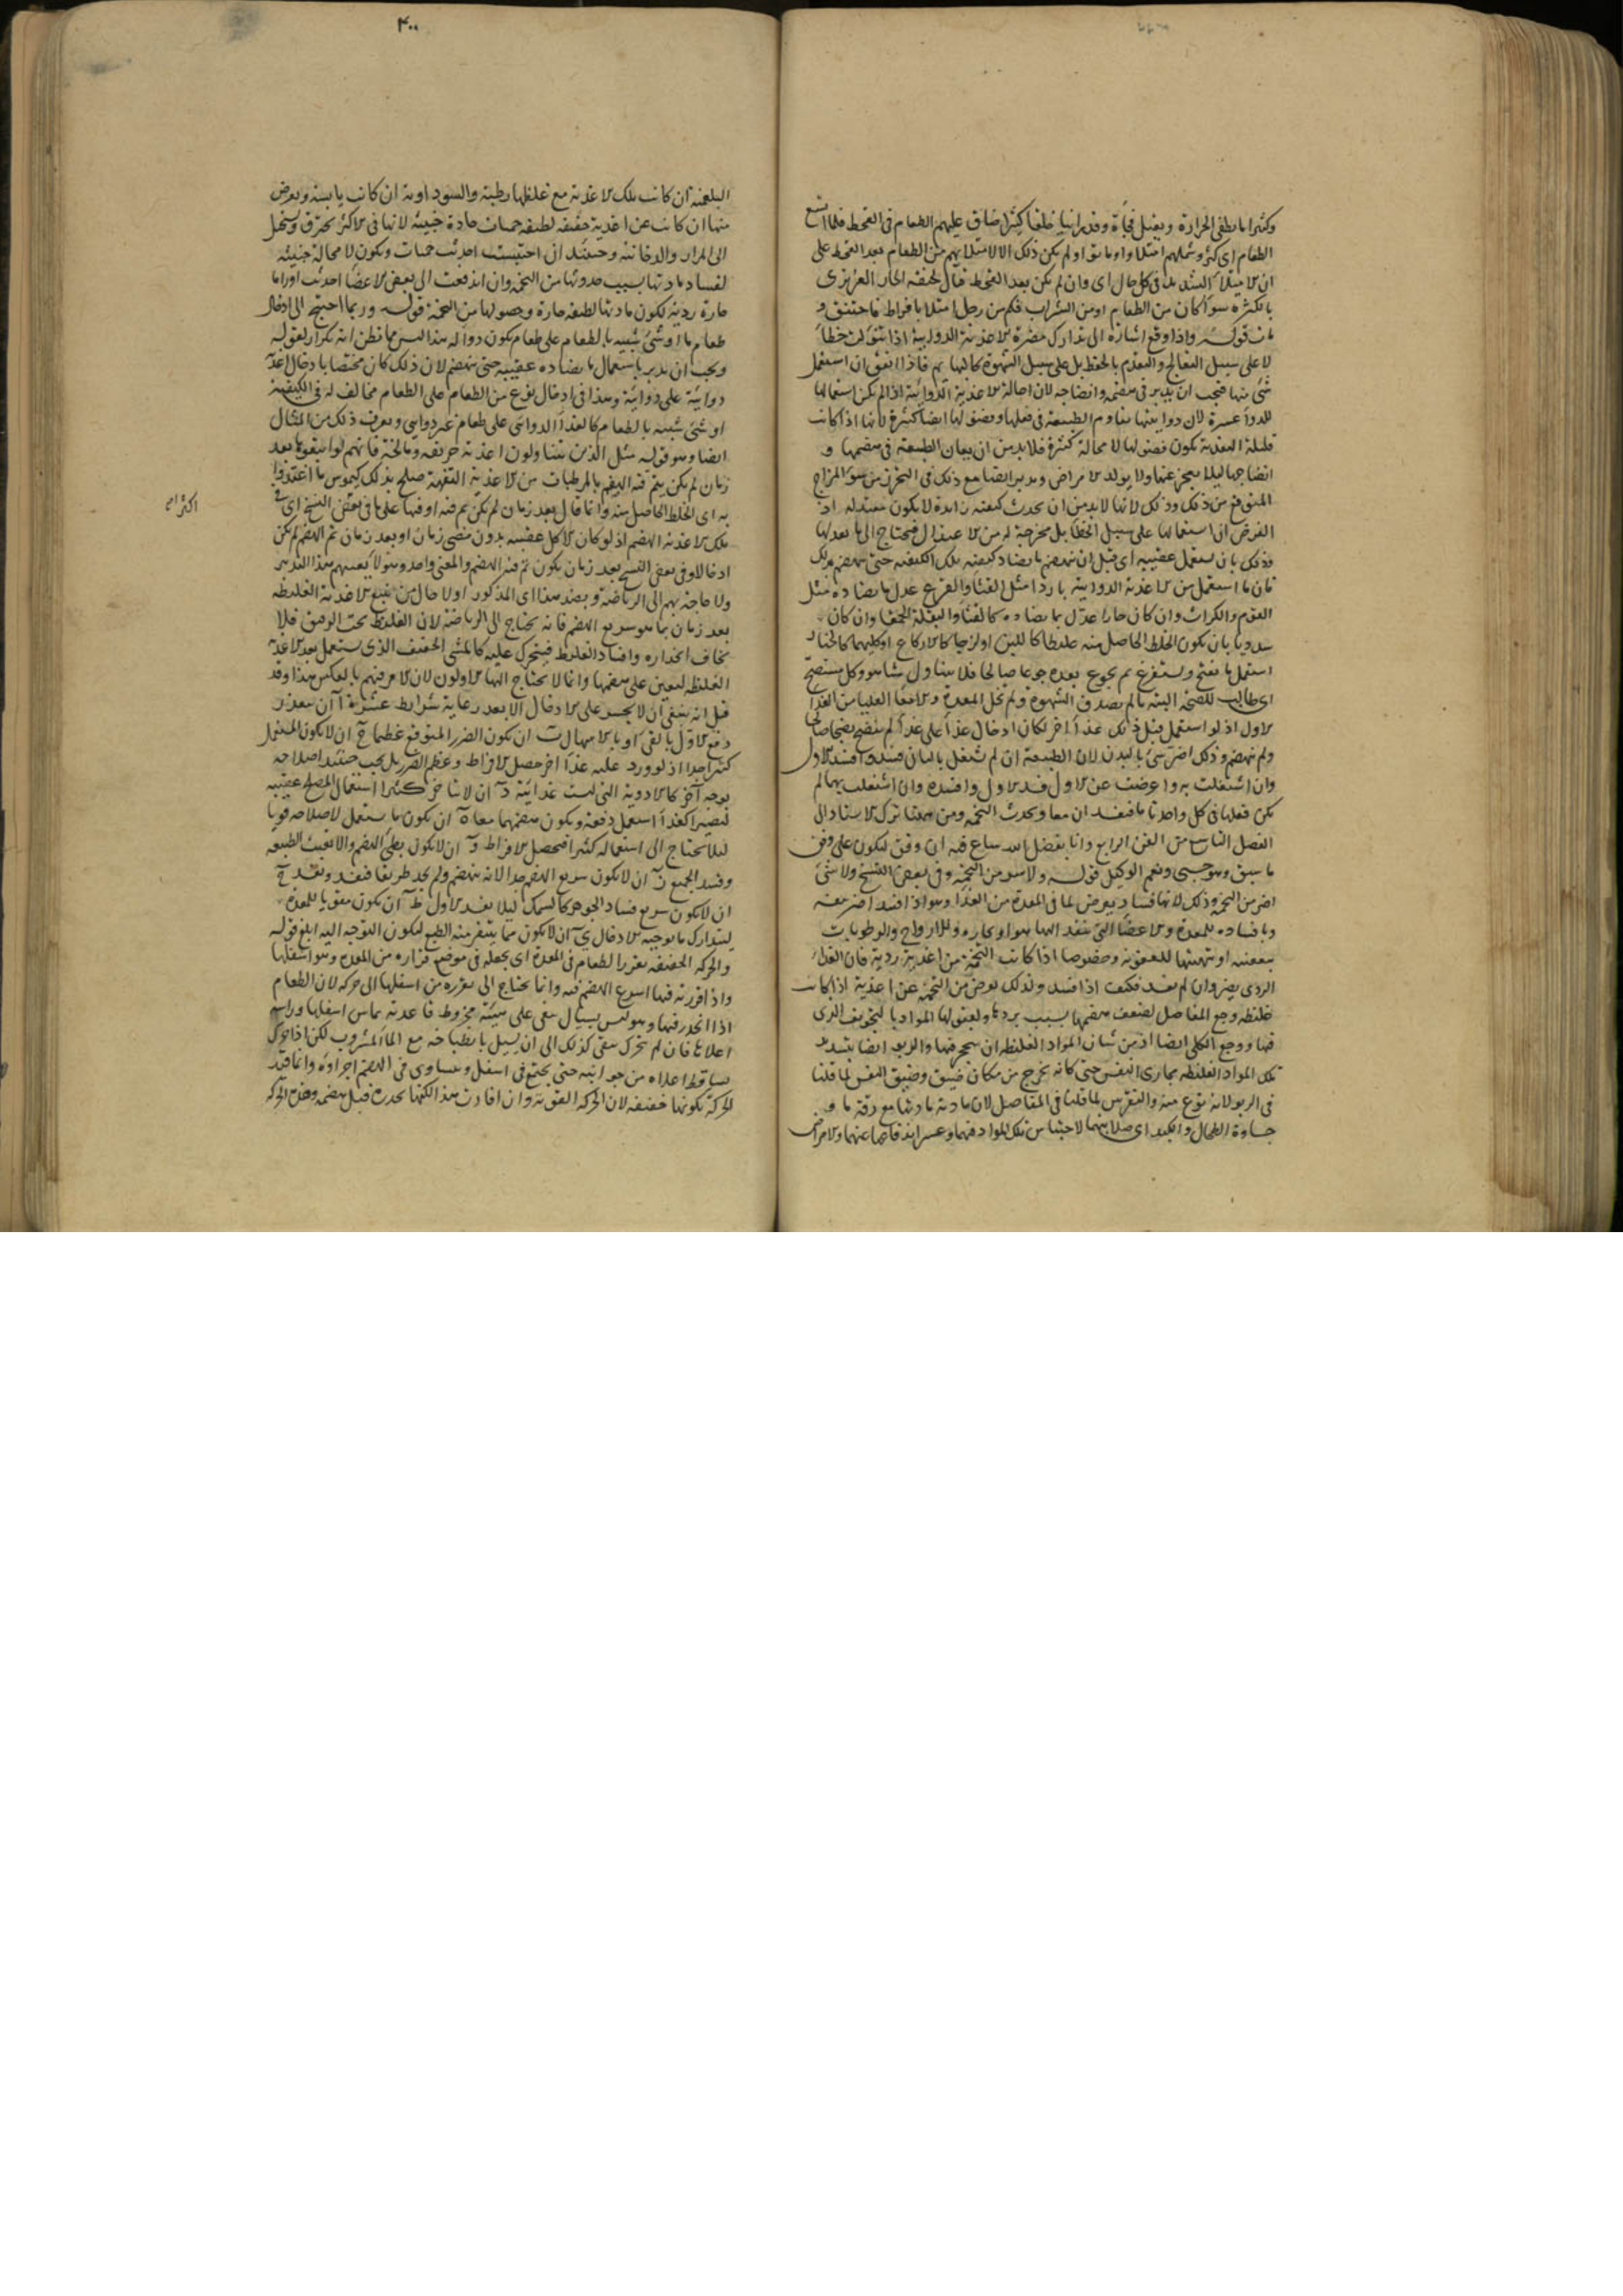 وكثيرا ما يطفئ الحرارة ويقتل فجأة وقد راينا خلقا كثيرا ضاق عليهم الطعام فى القحط فلما اتسع
الطعام اى كثر وشملهم امتلاوا وماتوا ولم يكن ذلك الا لامتلائهم من الطعام بعد القحط على
ان الامتلا الشديد فى كل حال اى وان لم يكن بعد القحط قتال لخنقه الحار الغريزى
بالكثرة سوا كان من الطعام او من الشراب فكم من رجل امتلا بافراط فاختنق و
مات قوله واذا وقع اشارة الى تدارك مضرة الاغذية الدوايية اذا تنوولت خطأ
لا على سبيل التعالج والتقدم بالحفظ بل على سبيل الشهوة كالها ثم فاذا اتفق ان استعمل
شئ منها فيجب ان يدبر فى هضمه وانضاجه لان احالة الاغذية الدوائية اذا لم يكن استعمالها
للدوا عسرة لان دوائيتها تقاوم الطبيعة فى فعلها وفضولها ايضا كثيرة لانها اذا كانت
قليلة التغذية تكون فضولها لا محالة كثيرة فلا بد من ان يعان الطبيعة فى هضمها و
انضاجها ليلا يعجز عنها ولا يولد الامراض ويدبر ايضا مع ذلك فى التحرز من سو المزاج
المتوقع من ذلك وذلك لانها لا بد من ان يحدث كيفية زايدة لا يكون معتدلة اذ
الفرض ان استعمالها على سبيل الخطا بل مخرجة له من الاعتدال فيحتاج الى ما يعدلها
وذلك بان يستعمل عقيبه اى قبل ان ينهضم ما يضاد كيفيته تلك الكيفية حتى ينهضم ذلك
فان ما استعمل من الاغذية الدوايية باردا مثل القثا والقرع عدل بما يضاده مثل
الثوم والكراث وان كان حارا عدل بما يضاده كالقثا والبقلة الحمقا وان كان
سدديا بان يكون الخلط الحاصل منه غليظا كاللبن او لزجا كالاكارع او كليهما كالخيار
استعمل ما يفتح ويستفرغ ثم يجوع بعده جوعا صالحا فلا يتناول شيا هو وكل مستصح
اى طالب للصحة البتة ما لم يصدق الشهوة ولم تخل المعدة والامعا العليا من الغذا
الاول اذ لو استعمل قبل ذلك غذا اخر لكان ادخال غذا على غذا لم ينضج نضجا صالحا
ولم ينهضم وذلك اضر شئ بالبدن لان الطبيعة ان لم تشغل بالثانى فسد وافسد الاول
وان اشتغلت به واعرضت عن الاول فسد الاول وافسده وان اشتغلت بهما لم
يكن فعلها فى كل واحد تاما فيفسدان معا ويحدث التخمة ومن ههنا ترك الاستاد الى
الفصل التاسع من الفن الرابع وانا بفضل الله ساع فيه ان وفق ليكون على وفق
ما سبق وهو حسبى ونعم الوكيل قوله ولا اسو من التخمة وفى بعض النسخ ولا شئ
اضر من التخمة وذلك لانها فساد يعرض لما فى المعدة من الغذا وهو اذا فسد اضر بعفنه
وبافساده للمعدة والاعضا التى ينفذ اليها هو او بخاره وللارواح والرطوبات
بتعفنه او تهيئتها للعفونة وخصوصا اذا كانت التخمة من اغذية ردية فان الغذا
الردى يضر وان لم يفسد فكيف اذا فسد ولذلك يعرض من التخمة عن اغذية اذا كانت
غليظة وجع المفاصل لضعف هضمها بسبب بردها ولقبولها المواد بالتجويف الذى
فيها ووجع الكلى ايضا اذ من شان المواد الغليظة ان يتحجر فيها والربو ايضا بتسديد
تلك المواد الغليظة مجارى النفس حتى كانه يخرج من مكان ضيق وضيق النفس لما قلنا
فى الربو لانه نوع منه والنقرس لما قلنا فى المفاصل لان مادته مادتها مع رقة ما و
جساوة الطحال والكبد اى صلابتهما لاحتباس تلك المواد فيهما وعسر اندفاعها عنهما والامراض
٤٠٠
البلغمية ان كانت تلك الاغذية مع غلظها رطبة والسوداوية ان كانت يابسة ويعرض
منها ان كانت عن اغذية خفيفة لطيفة حميات حادة خبيثة لانها فى الاكثر يحترق ويستحيل
الى المرار والدخانية وحينئذ ان احتبست احدثت حميات ويكون لا محالة خبيثة
لفساد مادتها بسبب حدوثها من التخمة وان اندفعت الى بعض الاعضا احدثت اوراما
حارة ردية لكون مادتها لطيفة حارة وحصولها من التخمة قوله وربما احتيج الى ادخال
طعام ما او شئ شبيه بالطعام على طعام يكون دوا له هذا ليس مما يظن انه تكرار لقوله
ويجب ان يدبر باستعمال ما يضاده عقيبه حتى ينهضم لان ذلك كان مختصا بادخال اغذية
دوائية على دوائية وهذا فى ادخال نوع من الطعام على الطعام مخالف له فى الكيفية
او شئ شبيه بالطعام كالغذا الدوائى على طعام غير دوايى ويعرف ذلك من المثال
ايضا وهو قوله مثل الذين يتناولون اغذية حريفة ومالحة فانهم لو اتبعوها بعد
زمان لم يكن يتم فيه الهضم بالمرطبات من الاغذية التفهة صلح بذلك كيموس ما اغتذوا
به اى الخلط الحاصل منه وانما قال بعد زمان لم يكن يتم فيه او فيها على ما فى بعض النسخ اى فى
تلك الاغذية الهضم اذ لو كان الاكل عقيبه بدون مضى زمان او بعد زمان تم الهضم لم يكن
ادخالا وفى بعض النسخ بعد زمان يكون تم فيه الهضم والمعنى واحد وهولا يغنيهم هذا التدبير
ولا حاجة بهم الى الرياضة وبضد هذا اى المذكور اولا حال من يتبع الاغذية الغليظة
بعد زمان بما هو سريع الهضم فانه يحتاج الى الرياضة لان الغليظ تحت الرقيق فلا
يخاف انحداره وافساد الغليظ فيتحرك عليه كالمشى الخفيف الذى يستعمل بعد الاغذية
الغليظة ليعين على هضمها وانما لا يحتاج اليها الاولون لان الامر فيهم بالعكس هذا وقد
قيل انه ينبغى ان لا يجسر على الادخال الا بعد رعاية شرايط عشرة آ ان يتعذر
دفع الاول بالقى او بالاسهال ب ان يكون الضرر المتوقع عظيما ج ان لا يكون المستعمل
كثيرا جدا اذ لو ورد عليه غذا اخر حصل الافراط وعظم الضرر بل يجب حينئذ اصلاحه
بوجه آخر كالادوية التى ليست غذائية د ان لا يتاخر كثيرا استعمال المصلح عقيبه
ليصير كغذا استعمل دفعة ويكون هضمهما معا ه ان يكون ما يستعمل لاصلاحه قويا
ليلا يحتاج الى استعماله كثيرا فيحصل الافراط و ان لا يكون بطئ الهضم والا تعبت الطبيعة
وفسد الجميع ز ان لا يكون سريع الهضم جدا لانه ينهضم ولم يجد طريقا فيفسد ويفسد ح
ان لا يكون سريع فساد الجوهر كالسمك ليلا يفسد الاول ط ان يكون مقويا للمعدة
ليتدارك ما يوجبه الادخال ى ان لا يكون مما يتنفر منه الطبع ليكون التوجه اليه ابلغ قوله
والحركة الخفيفة يقرر الطعام فى المعدة اى يجعله فى موضع قراره من المعدة وهو اسفلها
واذا قر فيها اسرع الهضم فيه وانما يحتاج الى تقريره من اسفلها الى حركة لان الطعام
اذا انحدر فيها وهو ليس بسيال يبقى على هيئة مخروط قاعدته يماس اسفلها وراسه
اعلاها فان لم يتحرك يبقى كذلك الى ان يسيل بانطباخه مع الما المشروب لكن اذا تحرك
يساقط اعلاه من جوانبه حتى يجتمع فى اسفل ويتساوى فى الهضم اجزاؤه وانما قيد
الحركة بكونها خفيفة لان الحركة القوية وان افادت هذا لكنها يحدره قبل هضمه وخض الحركة